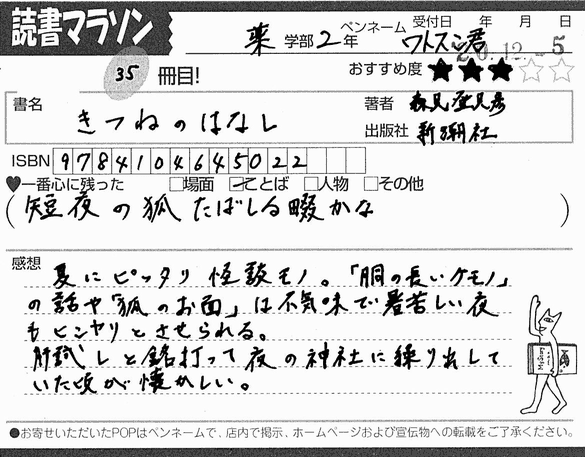 読書マラソン
薬 学部 2 年
ペンネーム ワトスン君
受付日 年 月 日
20.12.-5
35 冊目!
おすすめ度 ★★★☆☆
書名 きつねのはなし
著者 森見登美彦
出版社 新潮社
ISBN 9784104645022
♥一番心に残った □場面 ☑ことば □人物 □その他
(短夜の狐たばしる畷かな)
感想
夏にピッタリ怪談モノ。「胴の長いケモノ」
の話や「狐のお面」は不気味で暑苦しい夜
もヒンヤリとさせられる。
肝試しと銘打って夜の神社に繰り出して
いた頃が懐かしい。
●お寄せいただいたPOPはペンネームで、店内で掲示、ホームページおよび宣伝物への転載をご了承ください。